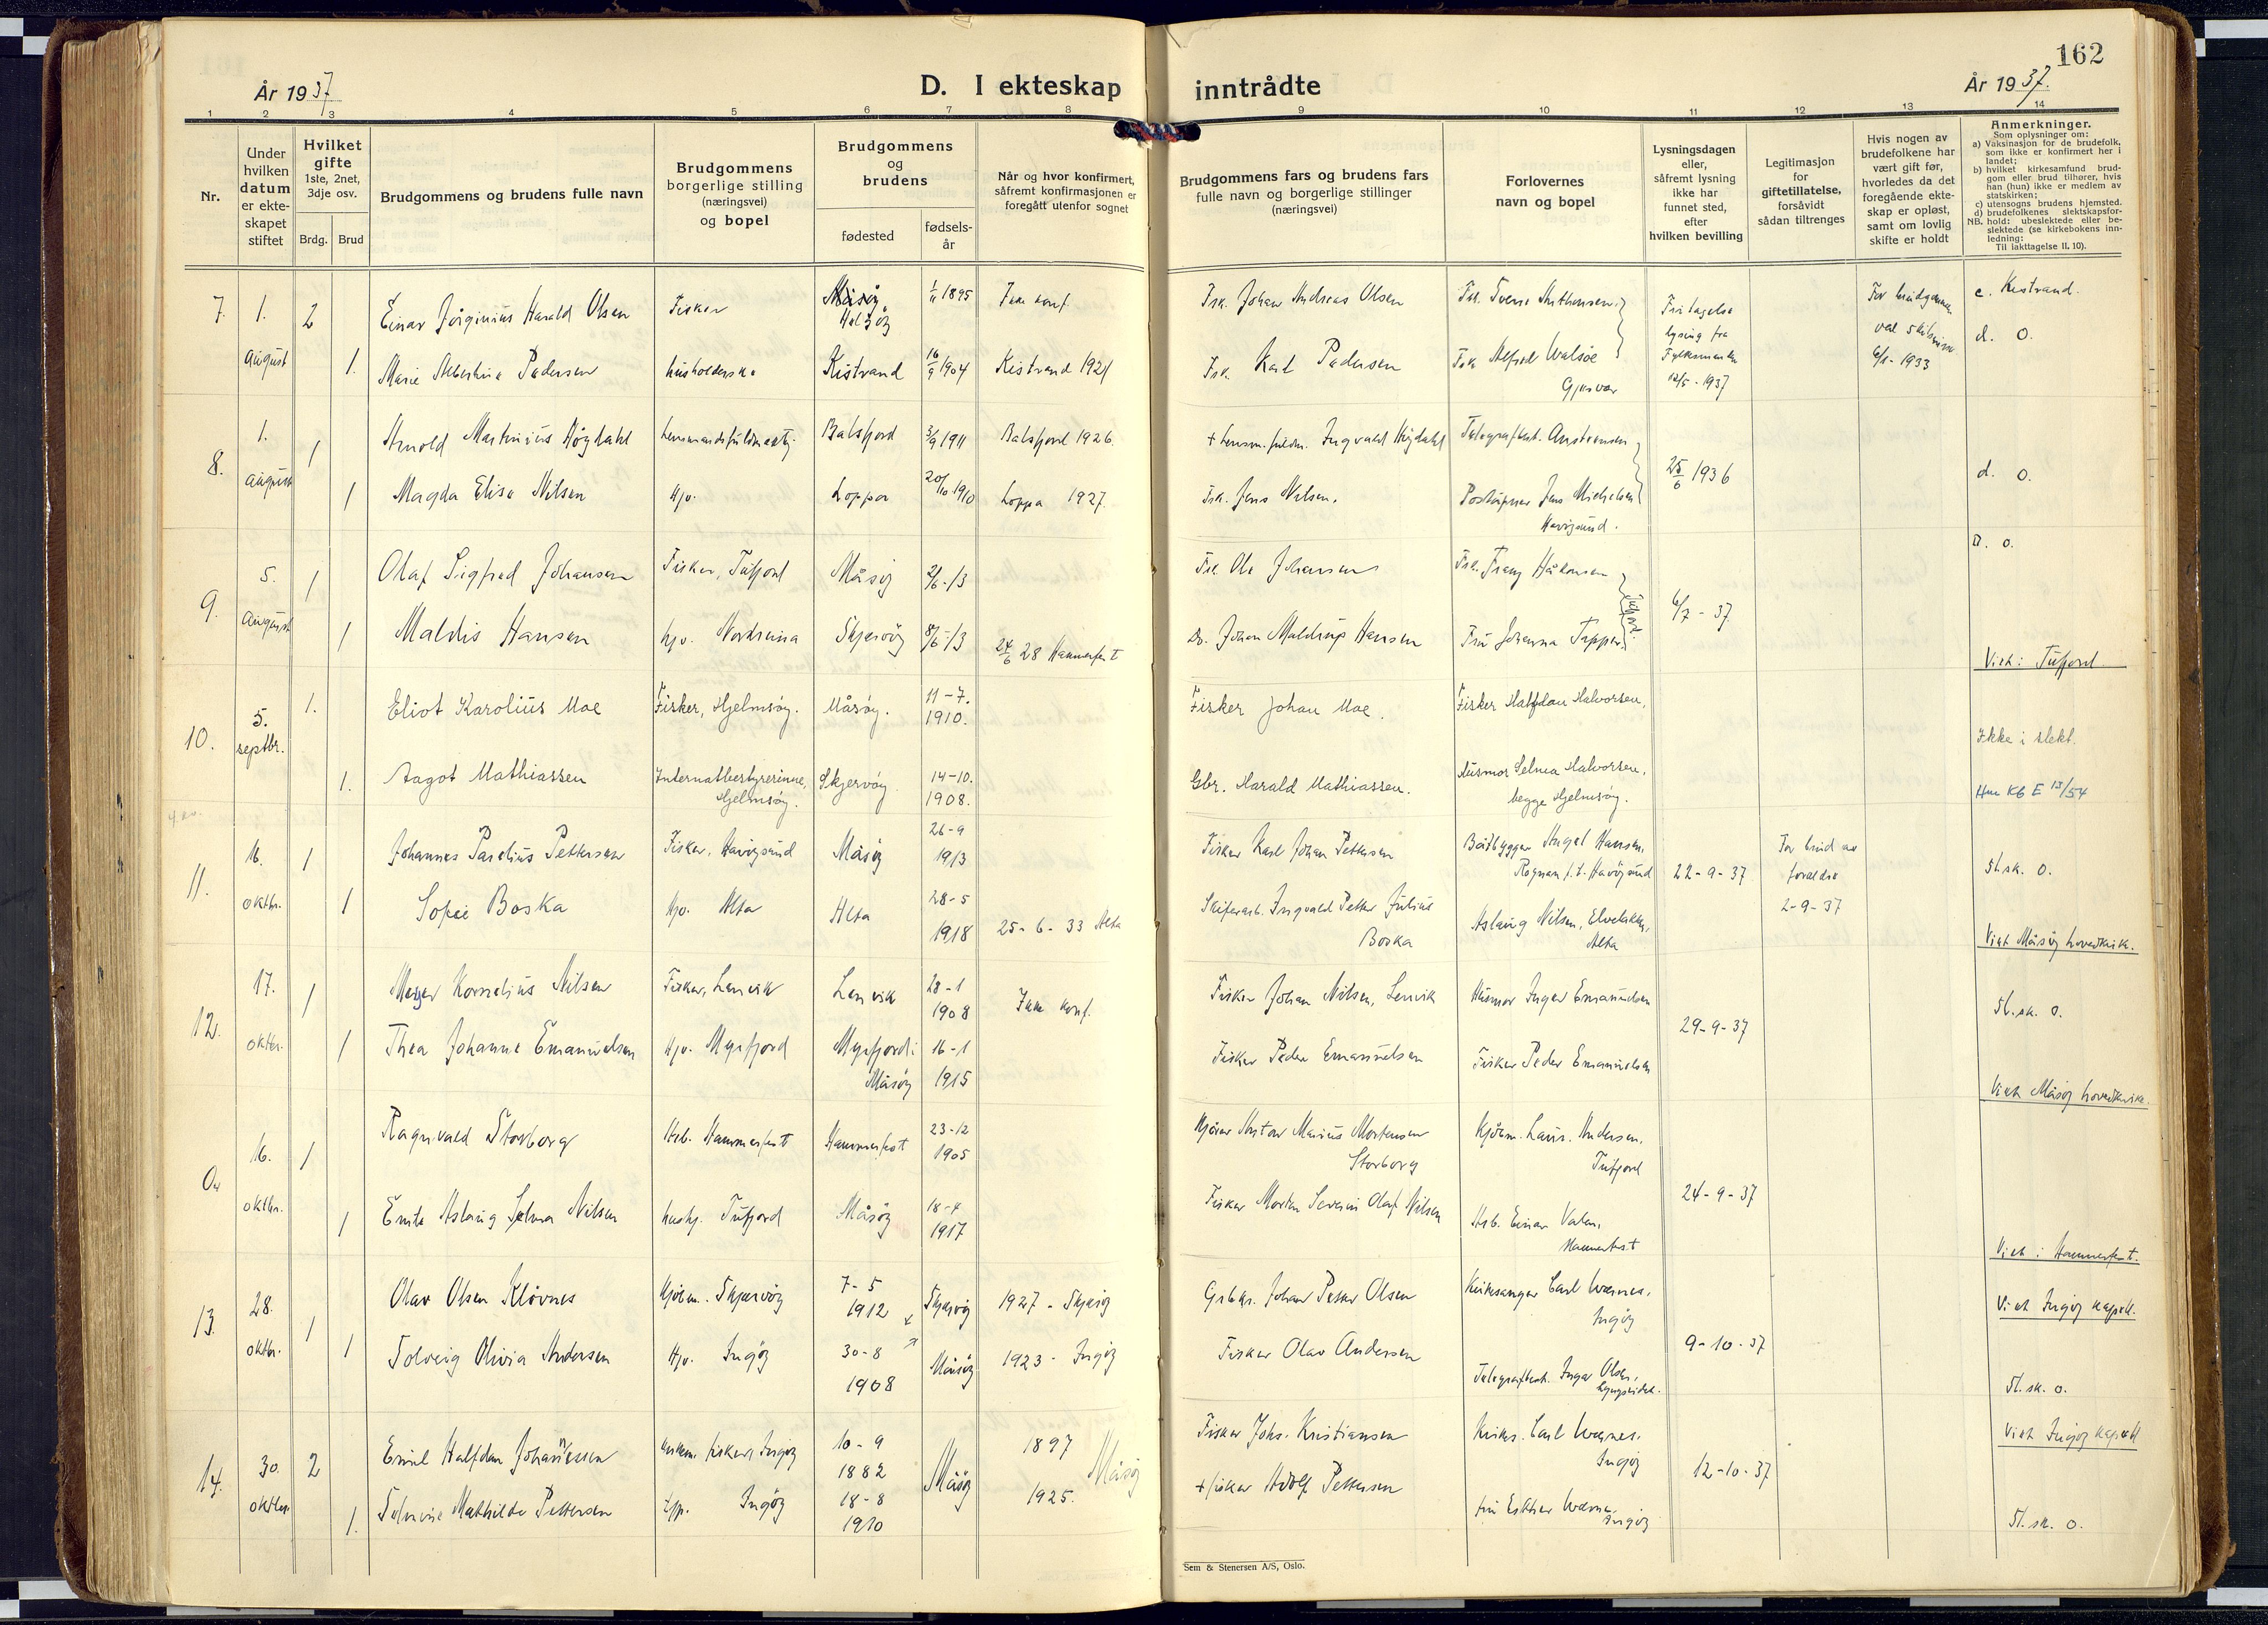 162
År 1937
D. I ekteskap inntrådte
År 1937.
1 2 3 4 5 6 7 8 9 10 11 12 13 14
Nr.
Under hvilken datum er ekteskapet stiftet
Hvilket gifte
1ste, 2net, 3dje osv.
Brdg. Brud
Brudgommens og brudens fulle navn
Brudgommens borgerlige stilling (næringsvei) og bopel
Brudgommens og brudens
fødested
fødsels-år
Når og hvor konfirmert, såfremt konfirmasjonen er foregått utenfor sognet
Brudgommens fars og brudens fars fulle navn og borgerlige stillinger (næringsvei)
Forlovernes navn og bopel
Lysningsdagen eller, såfremt lysning ikke har funnet sted, efter hvilken bevilling
Legitimasjon for giftetillatelse, forsåvidt sådan tiltrenges
Hvis nogen av brudefolkene har vært gift før, hvorledes da det foregående ekteskap er opløst, samt om lovlig skifte er holdt
Anmerkninger.
Som oplysninger om:
a) Vaksinasjon for de brudefolk, som ikke er konfirmert her i landet;
b) hvilket kirkesamfund brudgom eller brud tilhører, hvis han (hun) ikke er medlem av statskirken;
c) utensogns brudens hjemsted.
d) brudefolkenes slektskapsforhold: ubeslektede eller beslektede (se kirkebokens innledning:
NB.
Til iakttagelse II. 10).
7. 1. august 2 Einar Jørginius Harald Olsen Fisker 1895 Ikke konf. Fisk. Johan Andreas Olsen
c. Kistrand.
1. Marie Albertine Pedersen husholderske Kistrand 16/9 1904 Kistrand 1921 Fsk. Karl Pedersen
Gjesvær
12/5 - 1937
6/1 - 1933
d. o.
8. 1. august 1 Arnold Martinius Høgdahl Balsfjord 3/9 1911 Balsfjord 1926. Ingvald Høgdahl
1 Magda Elise Nilsen Hjv. Loppa 20/10 1910 Loppa 1927. Fsk. Jens Nilsen. Poståpner Jens Michelsen Havøysund.
25/6 1936
d. o.
9. 5. august 1 Olaf Sigfred Johansen Fisker, Tufjord Måsøy 2/6 - 13 Fsk. Ole Johansen
1 Maldis Hansen hjv. Skjervøy 8/6 - 13 24/6 28 Hammerfest Johan Maldrup Hansen Fru Johanna
6/7 - 37
D. o.
Viet: Tufjord
10. 5. septbr. 1. Eliot Karolius Moe Fisker, Hjelmsøy. Måsøy. 11-7. 1910. Fisker Johan Moe. Fisker Halfdan Halvorsen,
1. Aagot Mathiassen Internatbestyrerinne, Hjelmsøy. Skjervøy 14-10. 1908. Gbr. Harald Mathiassen. Husmor Selma Halvorsen, begge Hjelmsøy.
Ikke i slekt.
11. 16. oktbr. 1 Johannes Parelius Pettersen Fisker, Havøysund Måsøy 26-9 1913 Fisker Karl Johan Pettersen Båtbygger Angel Hansen, Rognan p.t. Havøysund
1 Sofie Boska Hjv. Alta Alta 28-5 1918 25-6-33 Alta Skiferarb. Ingvald Petter Julius Boska Aslaug Nilsen, Elvebakken, Alta
22-9-37
For brud av foreldre 2-9-37
Sl.sk. o.
Viet Måsøy hovedkirke.
12. 17. oktbr. 1 Meyer Kornelius Nilsen Fisker, Lenvik Lenvik 28-1 1908 Ikke konf. Fisker Johan Nilsen, Lenvik Husmor Inger Emanuelsen
1 Thea Johanne Emanuelsen Hjv. Myrfjord Myrfjord i Måsøy 16-1 1915 Fisker Peder Emanuelsen Fisker Peder Emanuelsen
29-9-37
Sl.sk. o.
Viet Måsøy hovedkirke.
16. oktbr. 1 Ragnvald Storborg Arb. Hammerfest Hammerfest 23-12 1905 Anton Marius Mortensen Storborg Laur. Andersen, Tufjord
1 Emte Aslaug Selma Nilsen hushj. Tufjord Måsøy 18-4 1917 Fisker Morten Severin Olaf Nilsen Arb. Einar Valen, Hammerfest
24-9-37
Viet i Hammerfest.
13. 28. oktbr. 1 Olav Olsen Kløvnes Skjervøy 7-5 1912 Skjervøy 1927 - Skjervøy Johan Petter Olsen Kirkesanger Carl Wærnes, Ingøy
1 Solveig Olivia Andersen Hjv. Ingøy 30-8 1908 Måsøy 1923 - Ingøy Fisker Olav Andersen Telegrafbest. Inga Olsen,
9-10-37
Viet Ingøy kapell.
Sl.sk. o.
14. 30. oktbr. 2 Emil Halfdan Johannessen fisker, Ingøy 10-9 1882 Måsøy 1897 Måsøy Fisker Johs. Kristiansen Kirks. Carl Wærnes, Ingøy
1. Mathilde Pettersen Ingøy 18-8 1910 1925. + fisker Adolf Pettersen fru Esther Wærnes, Ingøy
12-10-37
Viet Ingøy kapell
Sl.sk. o.
Sem & Stenersen A/S, Oslo.